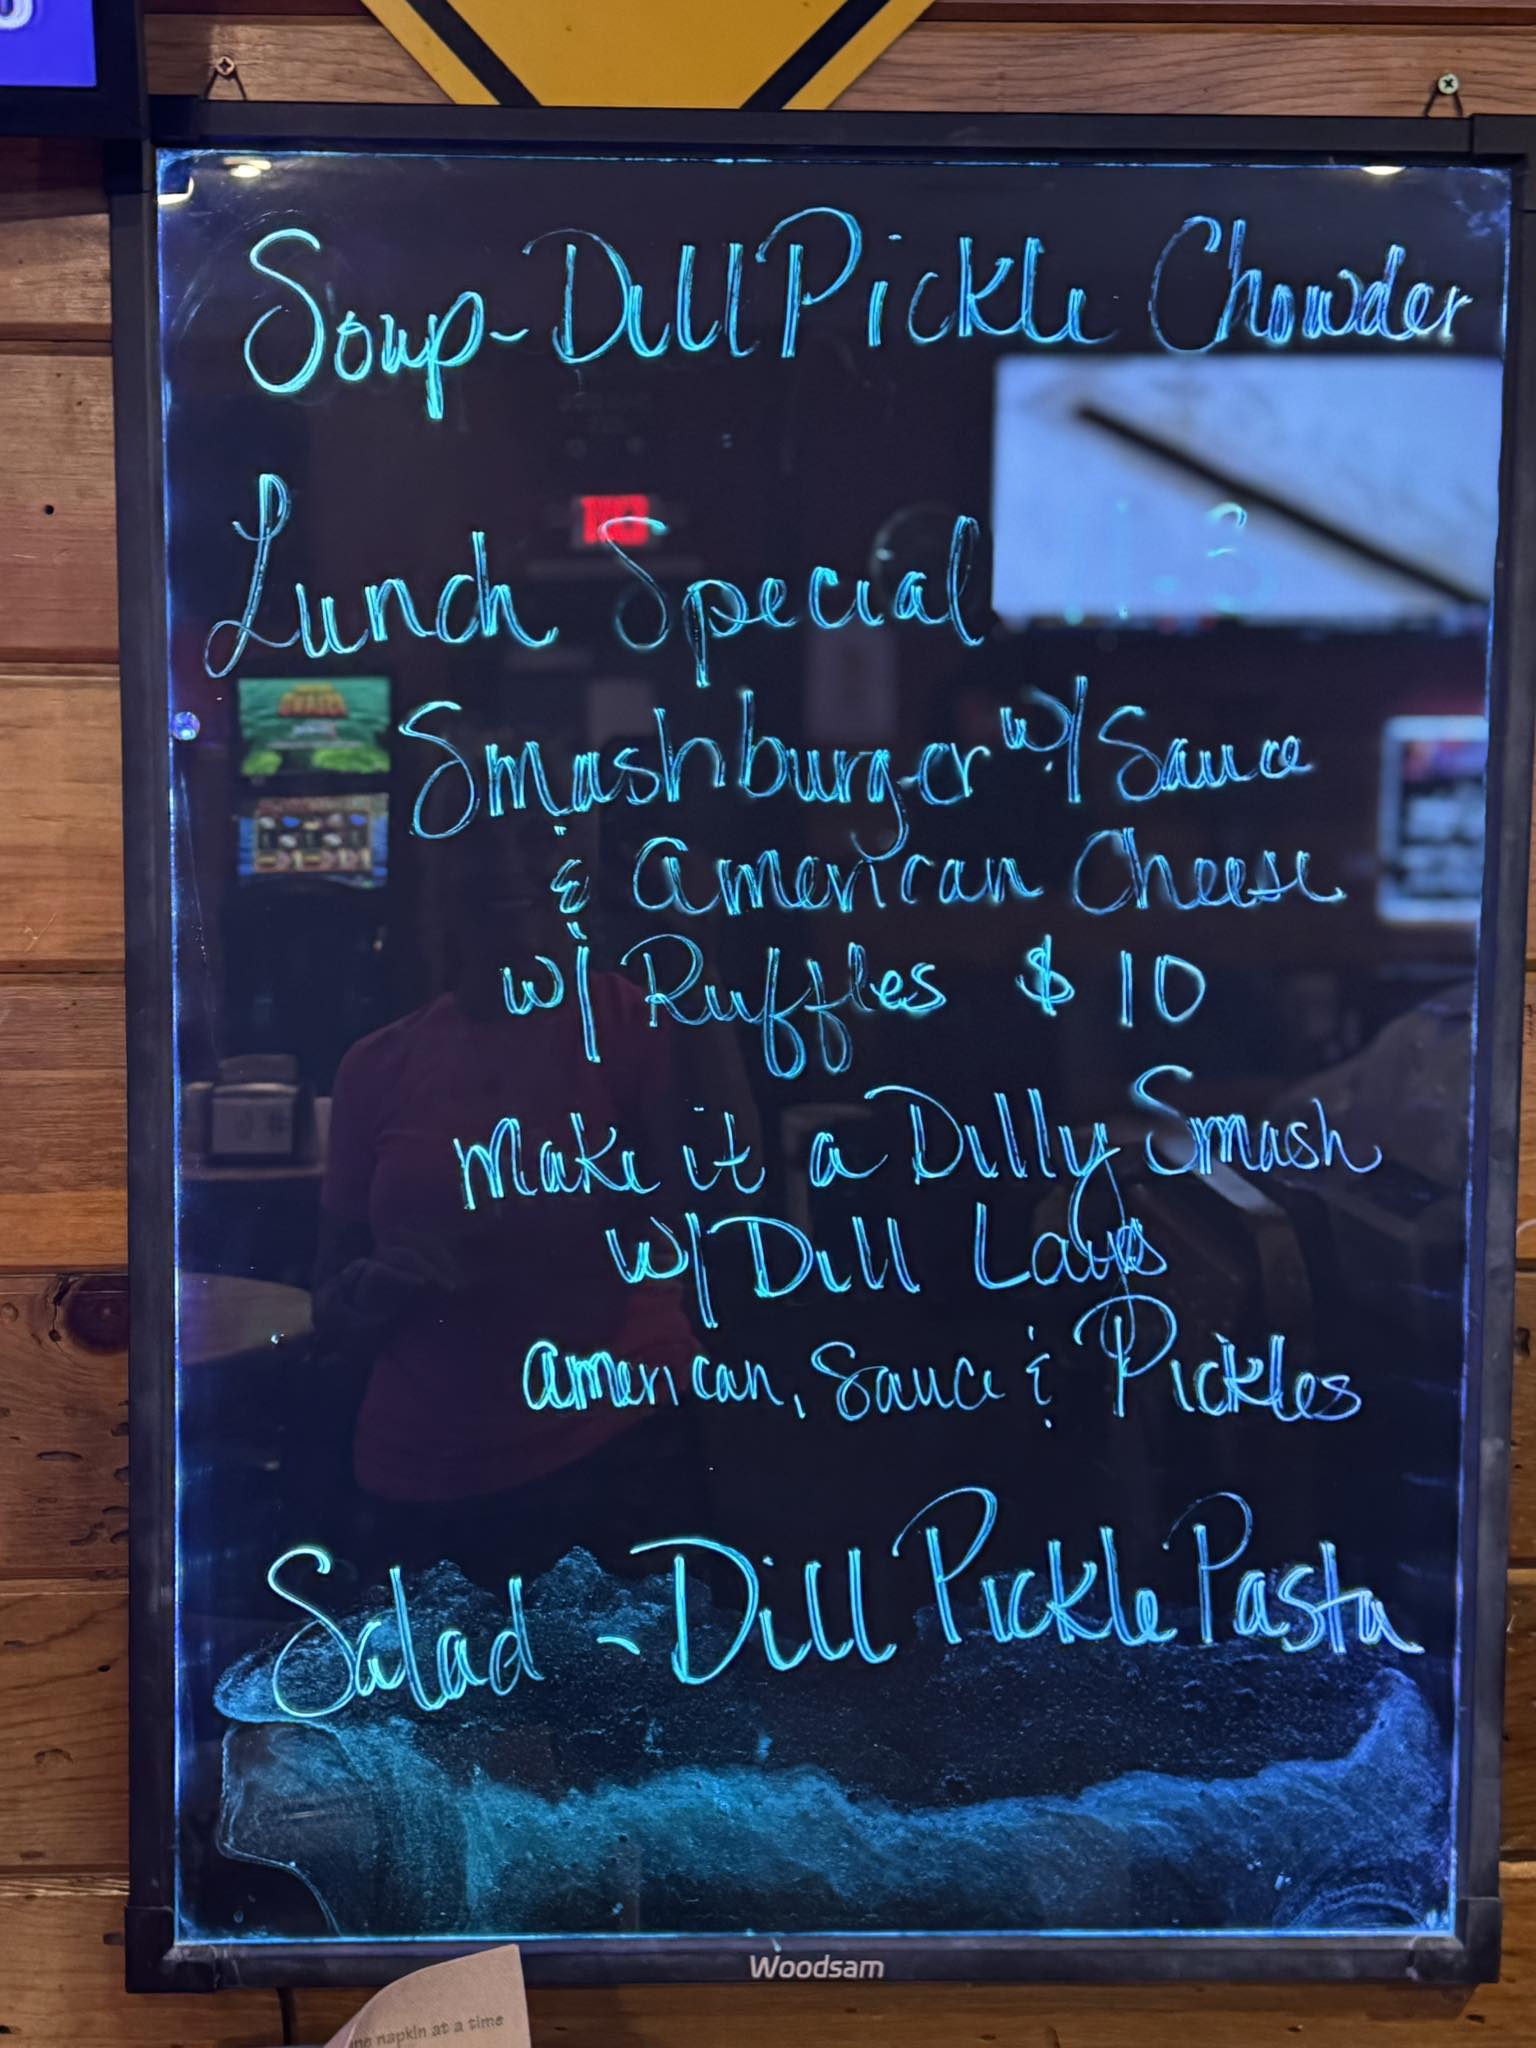 Soup - Dill Pickle Chowder
Lunch Special 11-3
Smashburger w/ Sauce
& American Cheese
w/ Ruffles $10
Make it a Dilly Smash
w/ Dill Lays
American, Sauce & Pickles
Salad - Dill Pickle Pasta
Woodsam
napkin at a time